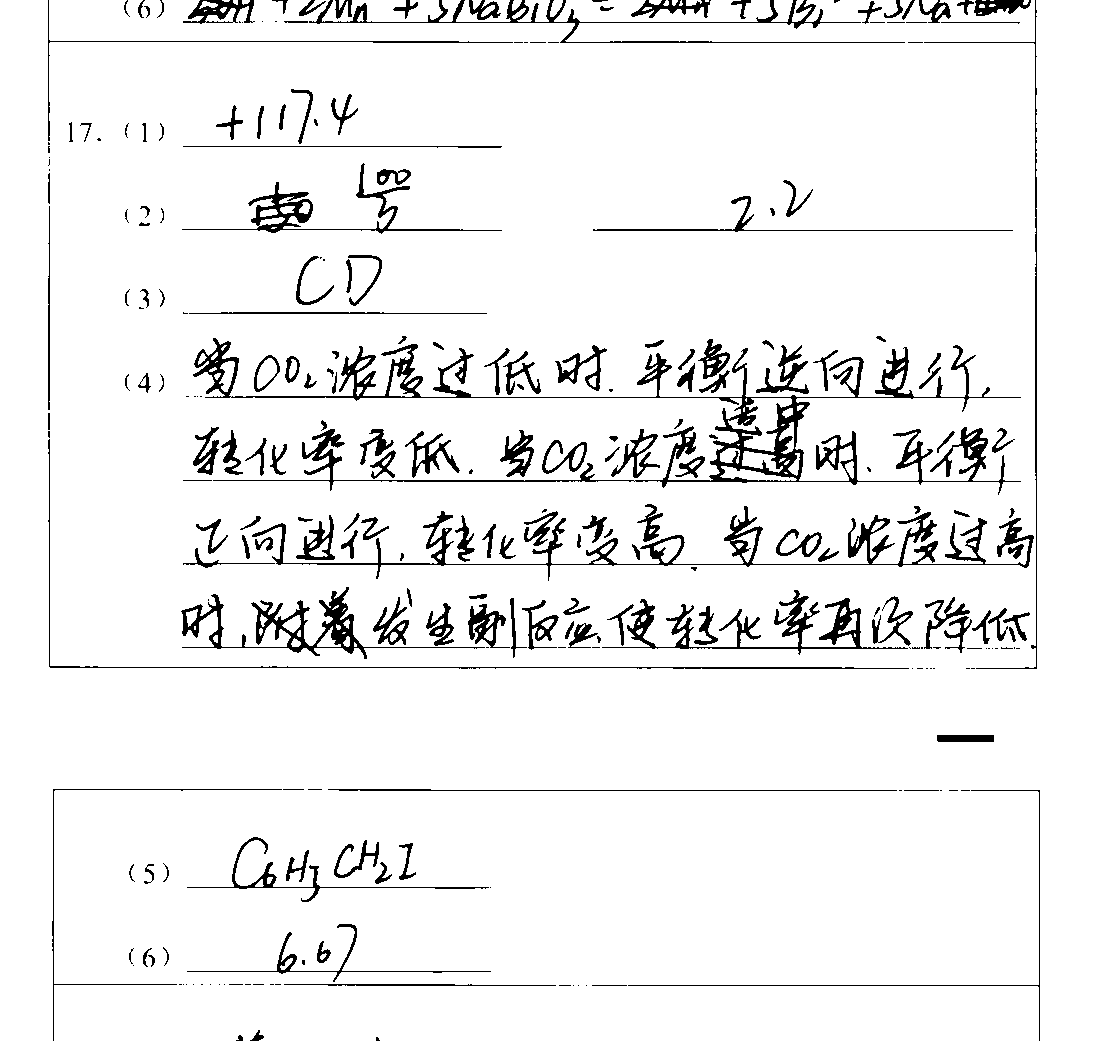 (6) + 2Mn + 5NaBiO₃ = + 5Bi + 5Na +
17. (1) +117.4
(2) 100/5 2.2
(3) CD
(4) 当CO₂浓度过低时.平衡逆向进行,
适中
转化率变低.当CO₂浓度时.平衡
正向进行,转化率变高.当CO₂浓度过高
时,附着发生副反应使转化率再次降低.
(5) C₆H₅CH₂I
(6) 6.67